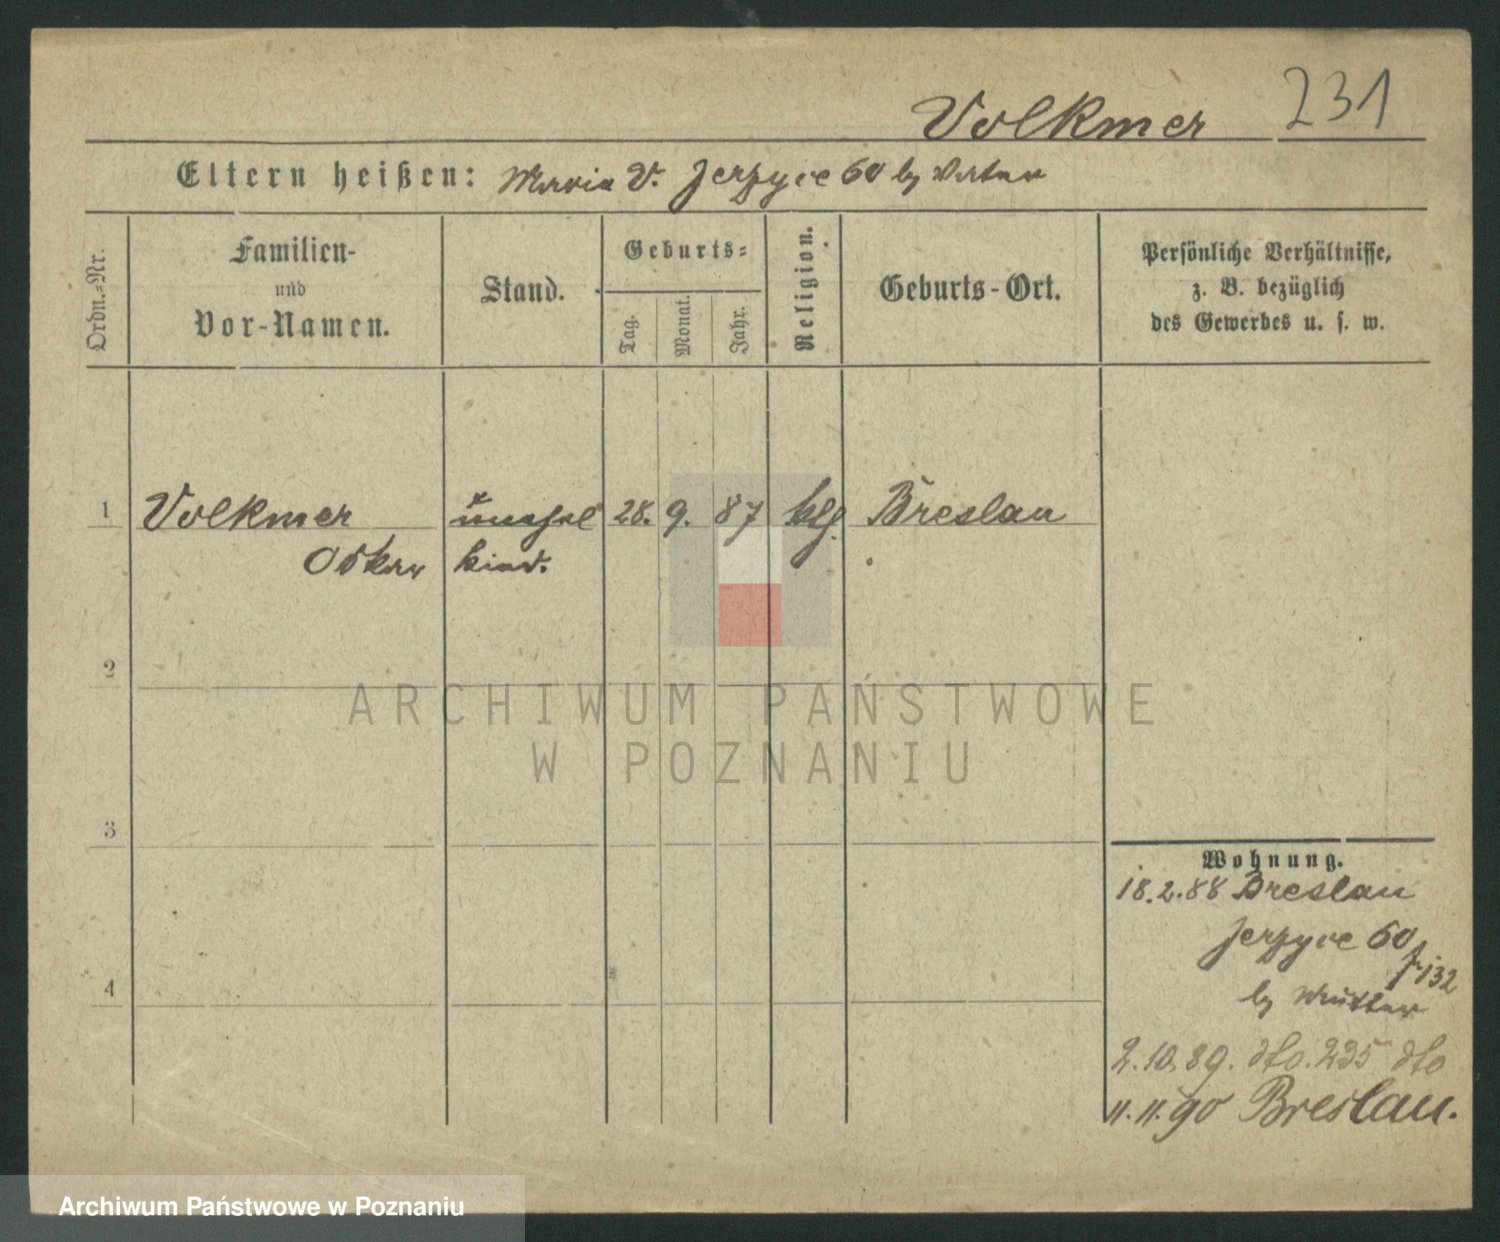 Volkmer 231
Eltern heißen: Maria V. Jerzyce 60 by
Ordn.-Nr.
Familien-
und
Vor-Namen.
Stand.
Geburts-
Tag.
Monat.
Jahr.
Religion.
Geburts-Ort.
Persönliche Verhältnisse,
z. B. bezüglich
des Gewerbes u. s. w.
1 Volkmer unehel 28. 9. 87 Breslau
Oskar Kind.
2
3
4
Wohnung.
18.2.88 Breslau
Jerzyce 60
132
by Mutter
2.10.89. dto. 235 dto
11.11.90 Breslau.
ARCHIWUM PAŃSTWOWE
W POZNANIU
Archiwum Państwowe w Poznaniu